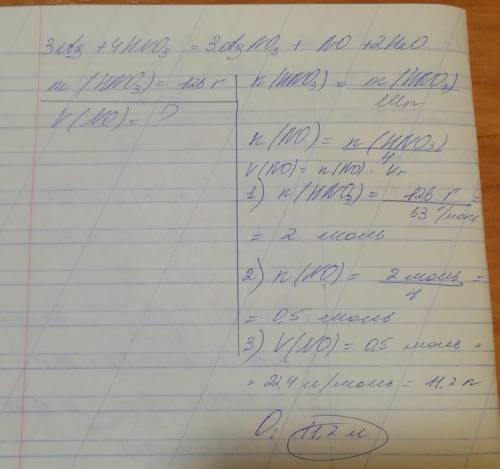 3Ag + 4HNO₃ = 3AgNO₃ + NO + 2H₂O
m (HNO₃) = 126 г
V(NO) = ?
n(HNO₃) = m(HNO₃) / Mr
n(NO) = n(HNO₃) / 4
V(NO) = n(NO) · Vr
1) n(HNO₃) = 126 г / 63 г/моль =
= 2 моль
2) n(NO) = 2 моль / 4 =
= 0,5 моль
3) V(NO) = 0,5 моль ×
× 22,4 л/моль = 11,2 л
О, 11,2 л